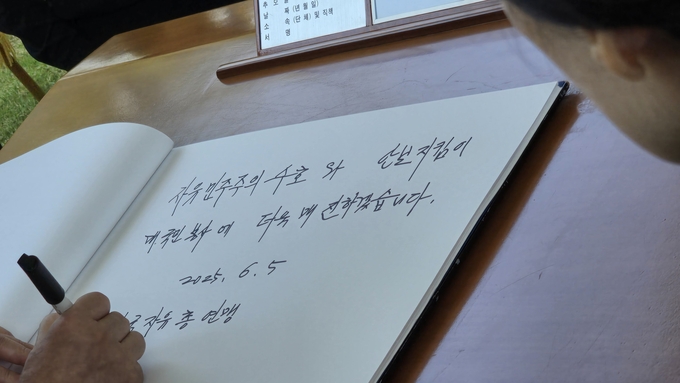 (년월일)
속 (단체) 및 직책
서 명
자유민주주의 수호 와 안보지킴이
대국민 봉사 에 더욱 매 진하겠습니다.
2025. 6. 5
자유 총 연맹